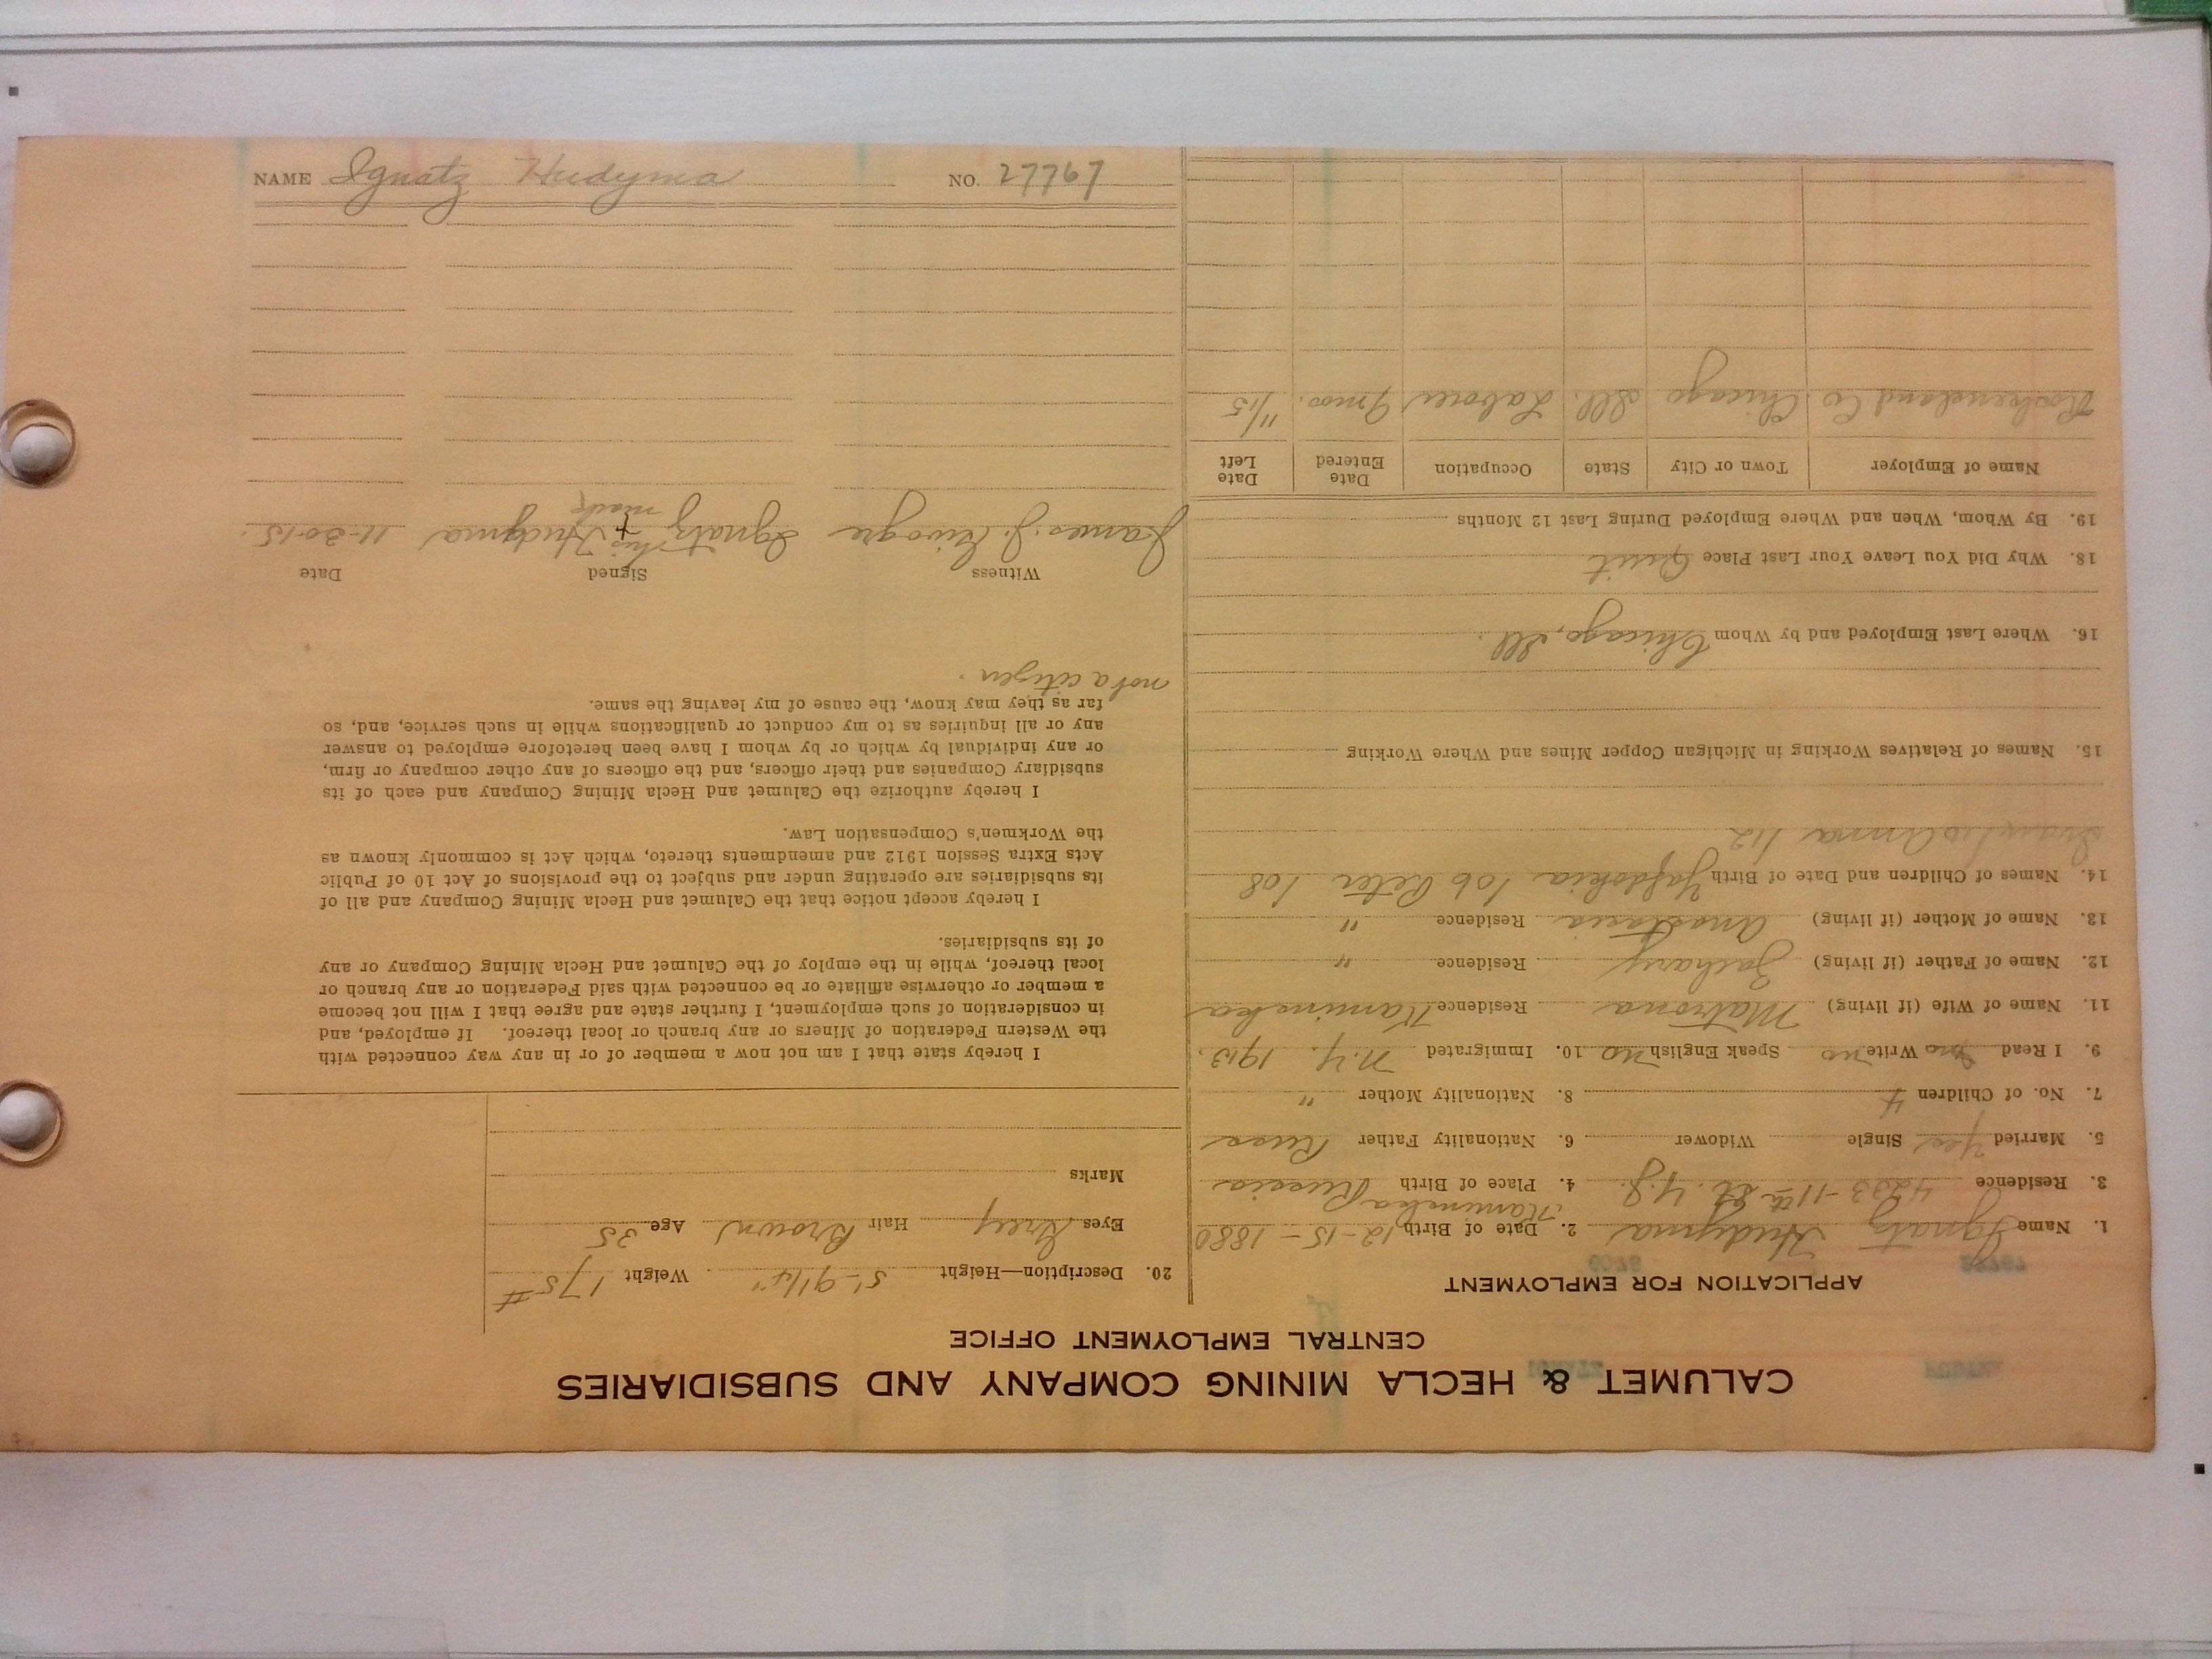 CALUMET & HECLA MINING COMPANY AND SUBSIDIARIES
CENTRAL EMPLOYMENT OFFICE
APPLICATION FOR EMPLOYMENT
1. Name Ignatz Hudyma 2. Date of Birth 12-15-1880
Kaminska
3. Residence 4233-11th St. Y.J. 4. Place of Birth Russia
5. Married Yes Single Widower 6. Nationality Father Russ
7. No. of Children 4 8. Nationality Mother "
9. I Read no Write no Speak English no 10. Immigrated N.Y. 1913.
11. Name of Wife (if living) Matrona Residence Kaminska
12. Name of Father (if living) Zachary Residence "
13. Name of Mother (if living) Anastasia Residence "
14. Names of Children and Date of Birth Yafdokia 1 06 Peter 1 08
Anna 1 12
15. Names of Relatives Working in Michigan Copper Mines and Where Working
16. Where Last Employed and by Whom Chicago, Ill.
18. Why Did You Leave Your Last Place Quit
19. By Whom, When and Where Employed During Last 12 Months
Name of Employer Town or City State Occupation Date Entered Date Left
Co. Chicago Ill. Laborer 9 mos. 11/15
20. Description—Height 5'-9 1/4" Weight 175#
Eyes Grey Hair Brown Age 35
Marks
I hereby state that I am not now a member of or in any way connected with
the Western Federation of Miners or any branch or local thereof. If employed, and
in consideration of such employment, I further state and agree that I will not become
a member or otherwise affiliate or be connected with said Federation or any branch or
local thereof, while in the employ of the Calumet and Hecla Mining Company or any
of its subsidiaries.
I hereby accept notice that the Calumet and Hecla Mining Company and all of
its subsidiaries are operating under and subject to the provisions of Act 10 of Public
Acts Extra Session 1912 and amendments thereto, which Act is commonly known as
the Workmen's Compensation Law.
I hereby authorize the Calumet and Hecla Mining Company and each of its
subsidiary Companies and their officers, and the officers of any other company or firm,
or any individual by which or by whom I have been heretofore employed to answer
any or all inquiries as to my conduct or qualifications while in such service, and, so
far as they may know, the cause of my leaving the same.
not a citizen.
Witness Signed Date
James J. Ignatz his + mark Hudyma 11-30-15.
NAME Ignatz Hudyma NO. 27767